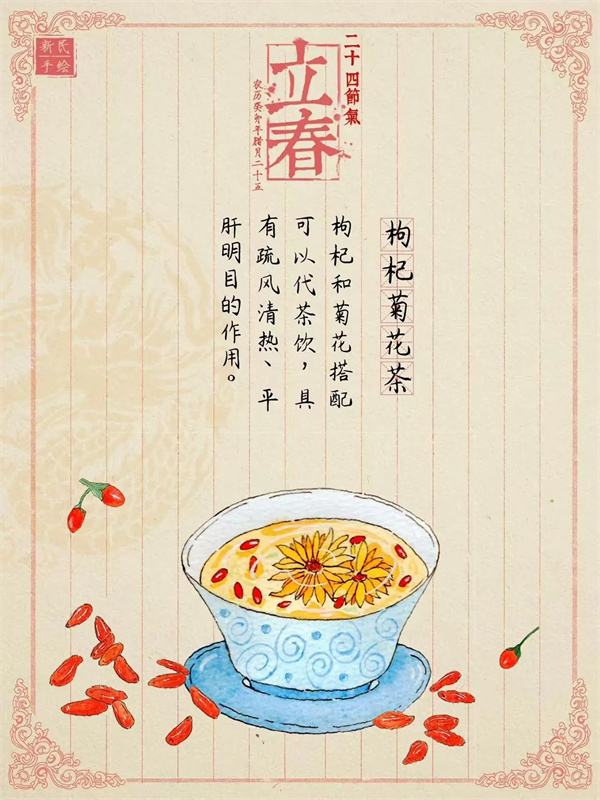 新民
手绘
二十四節氣
立春
农历癸卯年腊月二十五
枸杞菊花茶
枸杞和菊花搭配
可以代茶饮，具
有疏风清热、平
肝明目的作用。